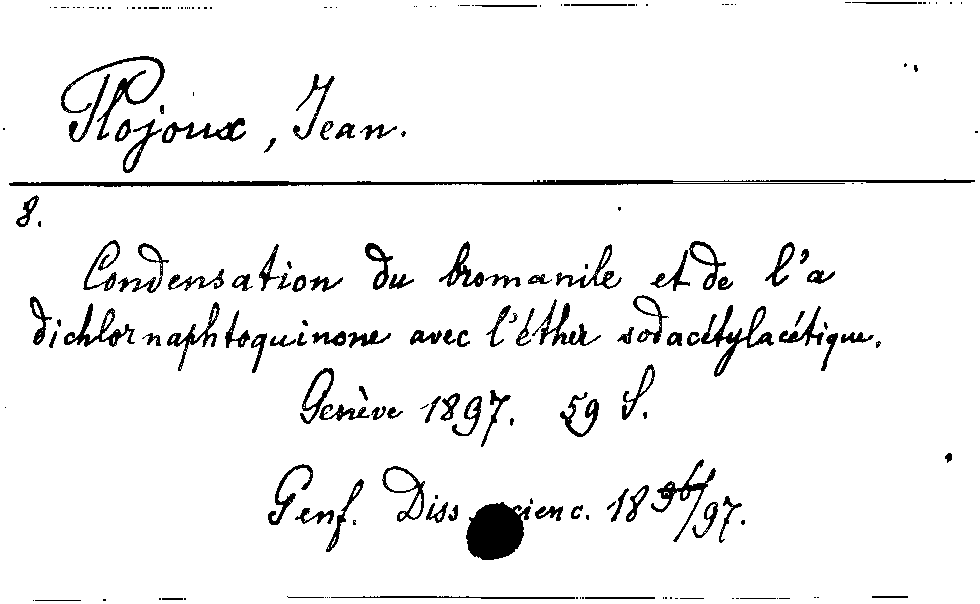 Plojoux, Jean.
8.
Condensation du bromanile et de l'a
dichlornaphtoquinone avec l'éther sodacétylacétique.
Genève 1897. 59 S.
Genf. Diss. scienc. 1896/97.